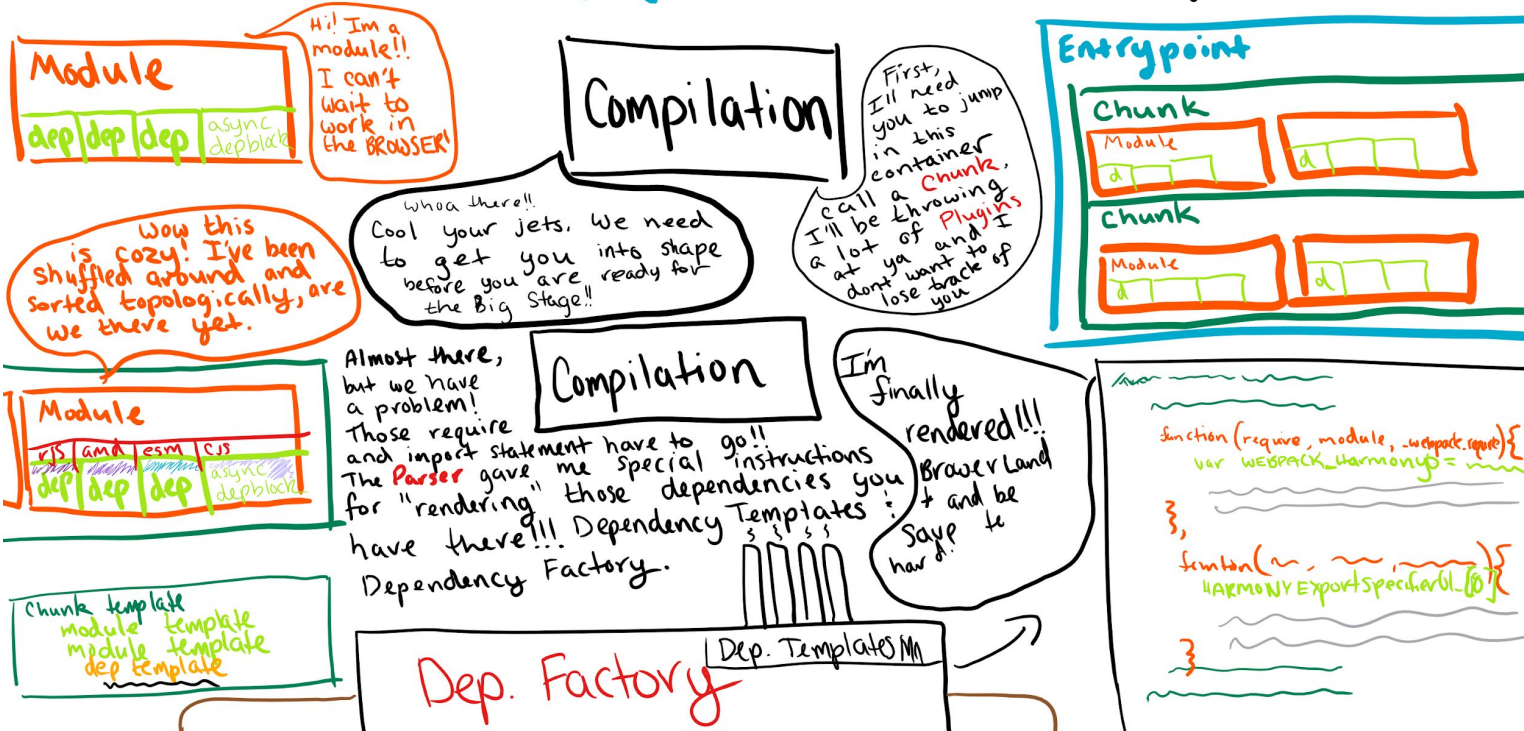 Module
dep dep dep async
depblock
Hi! Im a
module!!
I can't
wait to
work in
the BROWSER!
Compilation
whoa there!!
Cool your jets. We need
to get you into shape
before you are ready for
the Big Stage!!
First,
I'll need
you to jump
in this
container
call a Chunk.
I'll be throwing
a lot of Plugins
at ya and I
dont want to
lose track of
you
Entrypoint
Chunk
Module
d
d
Chunk
Module
d
d
Wow this
is cozy! I've been
shuffled around and
sorted topologically, are
we there yet.
Module
rjs amd esm cjs
dep dep dep async
depblock
Compilation
Almost there,
but we have
a problem!
Those require
and import statement have to go!!
The Parser gave me special instructions
for "rendering" those dependencies you
have there!!! Dependency Templates :
Dependency Factory.
I'm
finally
rendered!!!
BrowerLand
and be
function (require, module, _webpack_require) {
var WEBPACK_Harmony =
},
function( , , ){
HARMONY Export Specifier
}
Chunk template
module template
module template
dep template
Dep. Templates
Dep. Factory